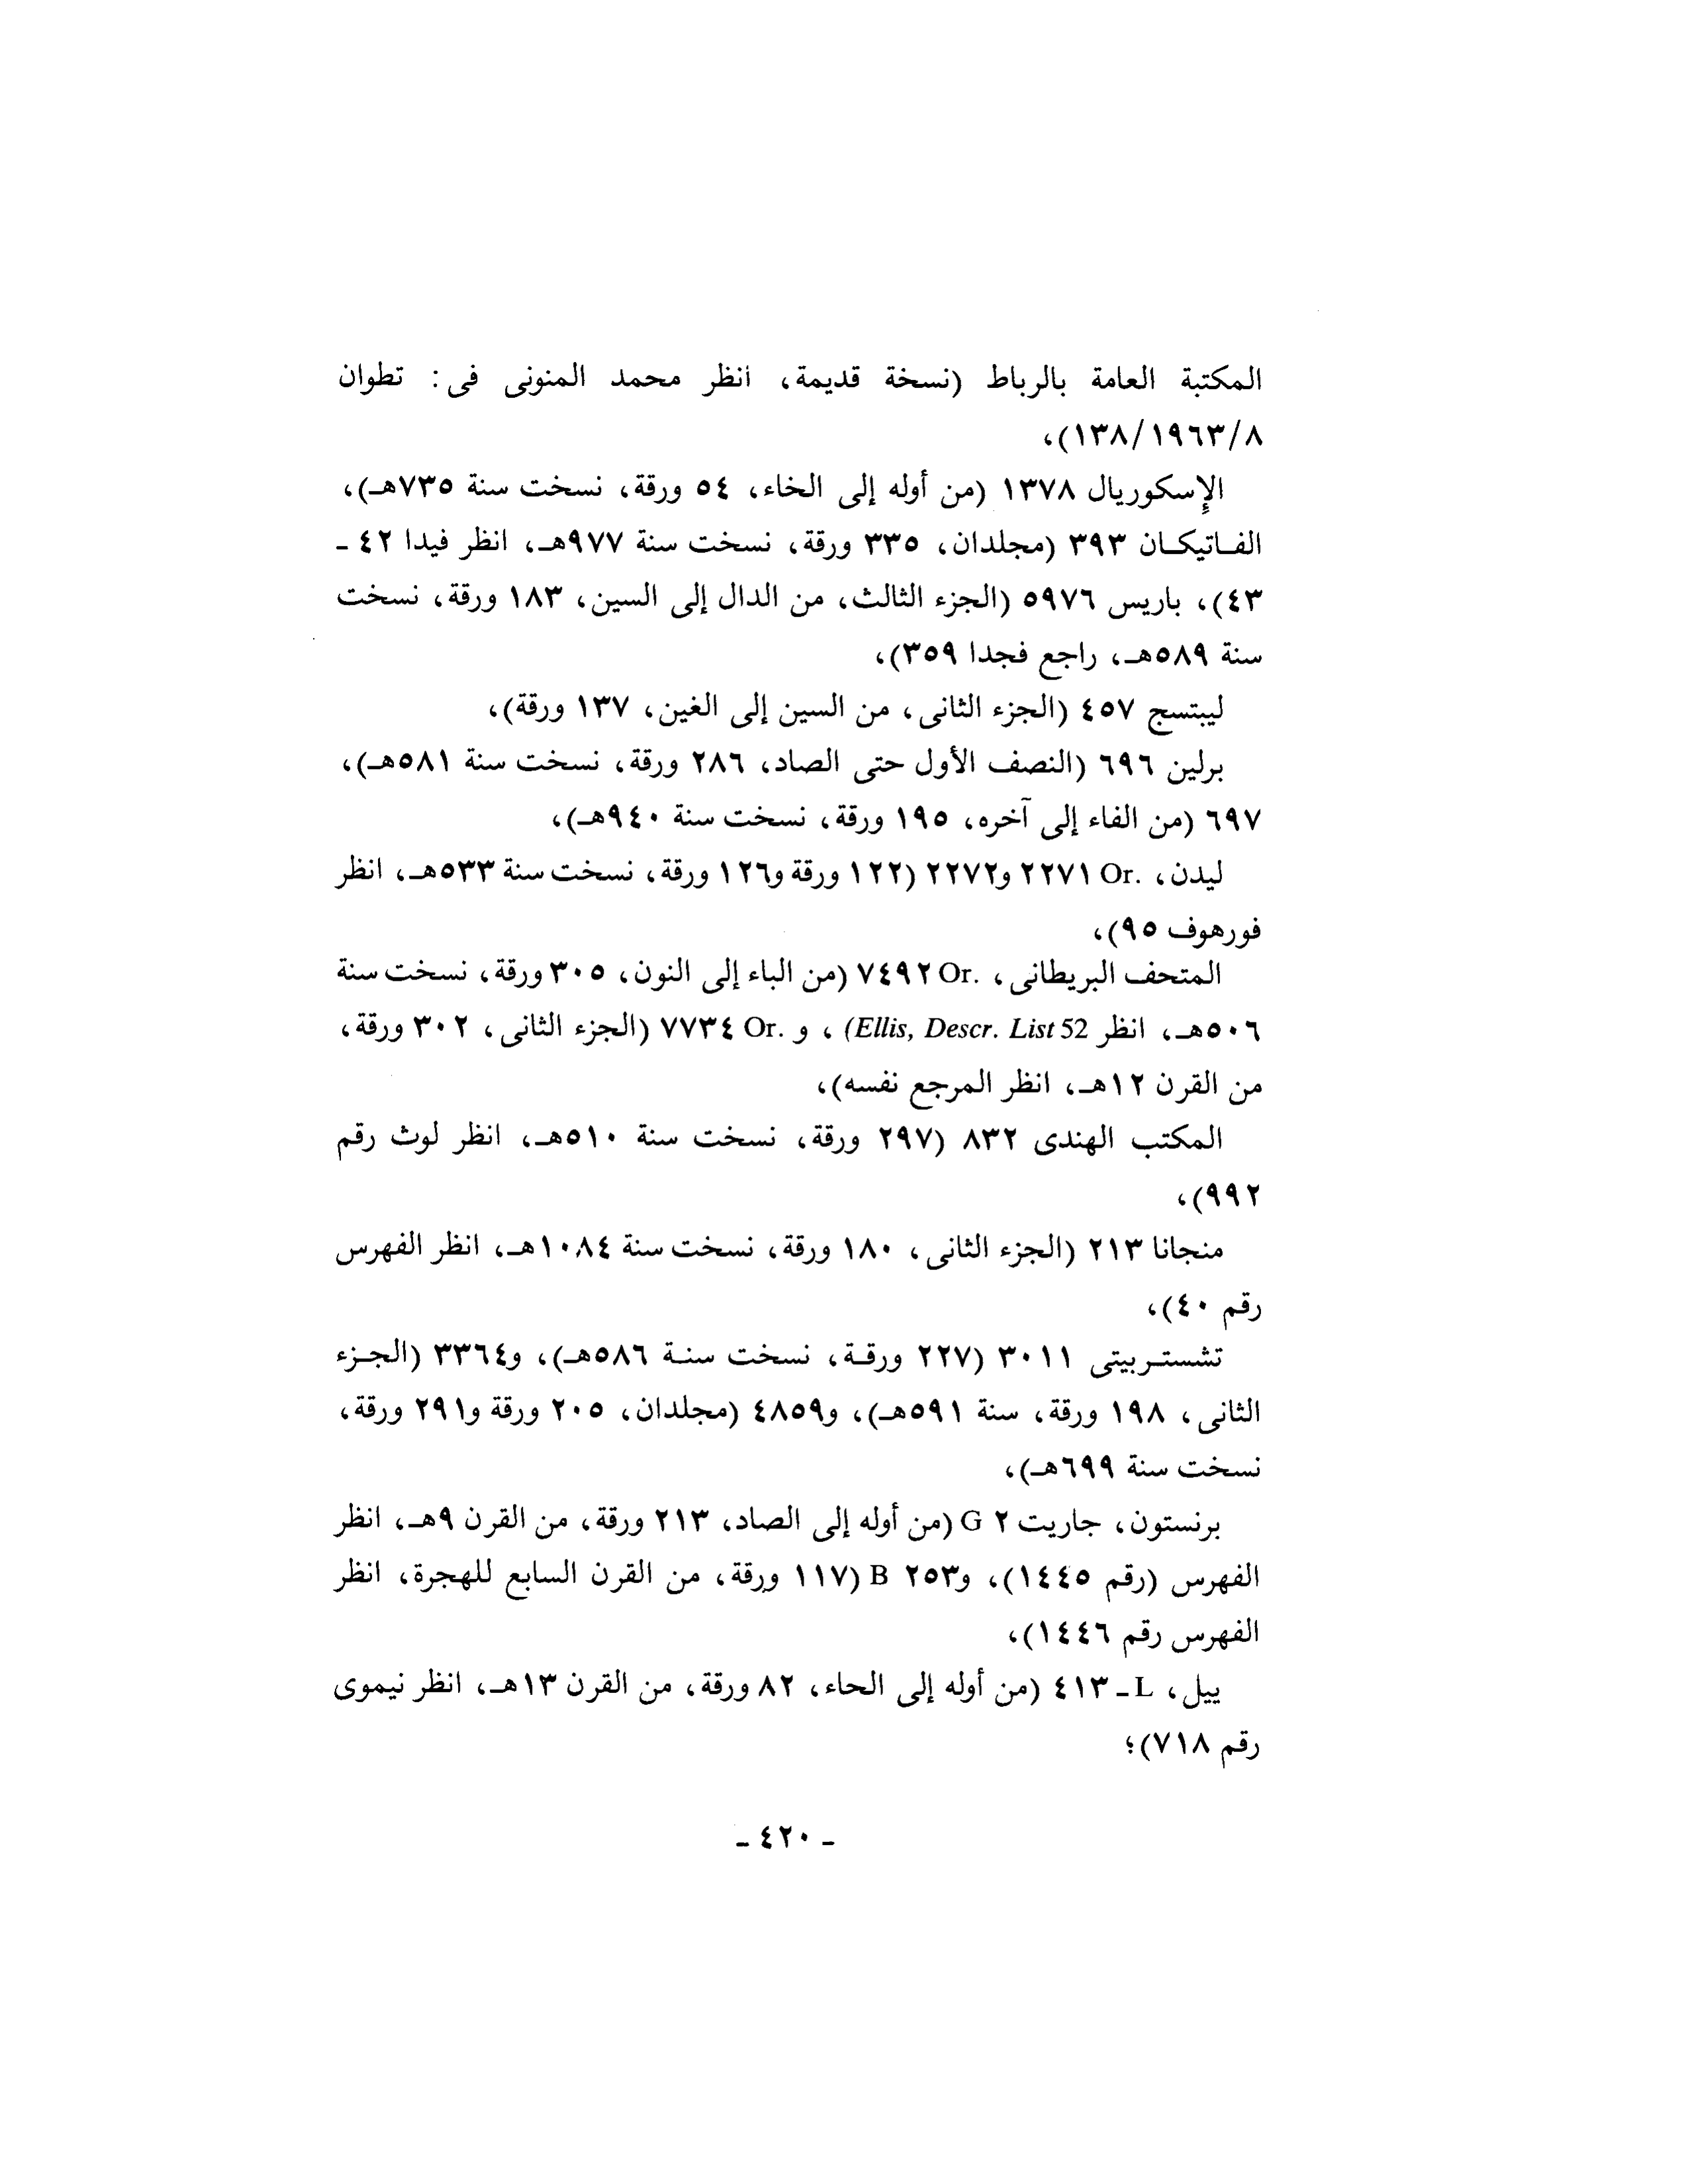 المكتبة العامة بالرباط (نسخة قديمة، انظر محمد المنونى فى: تطوان
٨/١٩٦٣/١٣٨)،
الإسكوريال ١٣٧٨ (من أوله إلى الخاء، ٥٤ ورقة، نسخت سنة ٧٣٥هـ)،
الفاتيكان ٣٩٣ (مجلدان، ٣٣٥ ورقة، نسخت سنة ٩٧٧هـ، انظر فيدا ٤٢ -
٤٣)، باريس ٥٩٧٦ (الجزء الثالث، من الدال إلى السين، ١٨٣ ورقة، نسخت
سنة ٥٨٩هـ، راجع فجدا ٣٥٩)،
ليبتسج ٤٥٧ (الجزء الثانى، من السين إلى الغين، ١٣٧ ورقة)،
برلين ٦٩٦ (النصف الأول حتى الصاد، ٢٨٦ ورقة، نسخت سنة ٥٨١هـ)،
٦٩٧ (من الفاء إلى آخره، ١٩٥ ورقة، نسخت سنة ٩٤٠هـ)،
ليدن، .Or ٢٢٧١ و٢٢٧٢ (١٢٢ ورقة و١٢٦ ورقة، نسخت سنة ٥٣٣هـ، انظر
فورهوف ٩٥)،
المتحف البريطانى، .Or ٧٤٩٢ (من الباء إلى النون، ٣٠٥ ورقة، نسخت سنة
٥٠٦هـ، انظر Ellis, Descr. List 52) ، و .Or ٧٧٣٤ (الجزء الثانى، ٣٠٢ ورقة،
من القرن ١٢هـ، انظر المرجع نفسه)،
المكتب الهندى ٨٣٢ (٢٩٧ ورقة، نسخت سنة ٥١٠هـ، انظر لوث رقم
٩٩٢)،
منجانا ٢١٣ (الجزء الثانى، ١٨٠ ورقة، نسخت سنة ١٠٨٤هـ، انظر الفهرس
رقم ٤٠)،
تشستربيتى ٣٠١١ (٢٢٧ ورقة، نسخت سنة ٥٨٦هـ)، و٣٣٦٤ (الجزء
الثانى، ١٩٨ ورقة، سنة ٥٩١هـ)، و٤٨٥٩ (مجلدان، ٢٠٥ ورقة و٢٩١ ورقة،
نسخت سنة ٦٩٩هـ)،
برنستون، جاريت ٢ G (من أوله إلى الصاد، ٢١٣ ورقة، من القرن ٩هـ، انظر
الفهرس (رقم ١٤٤٥)، و٢٥٣ B (١١٧ ورقة، من القرن السابع للهجرة، انظر
الفهرس رقم ١٤٤٦)،
ييل، L - ٤١٣ (من أوله إلى الحاء، ٨٢ ورقة، من القرن ١٣هـ، انظر نيموى
رقم ٧١٨)؛
- ٤٢٠ -